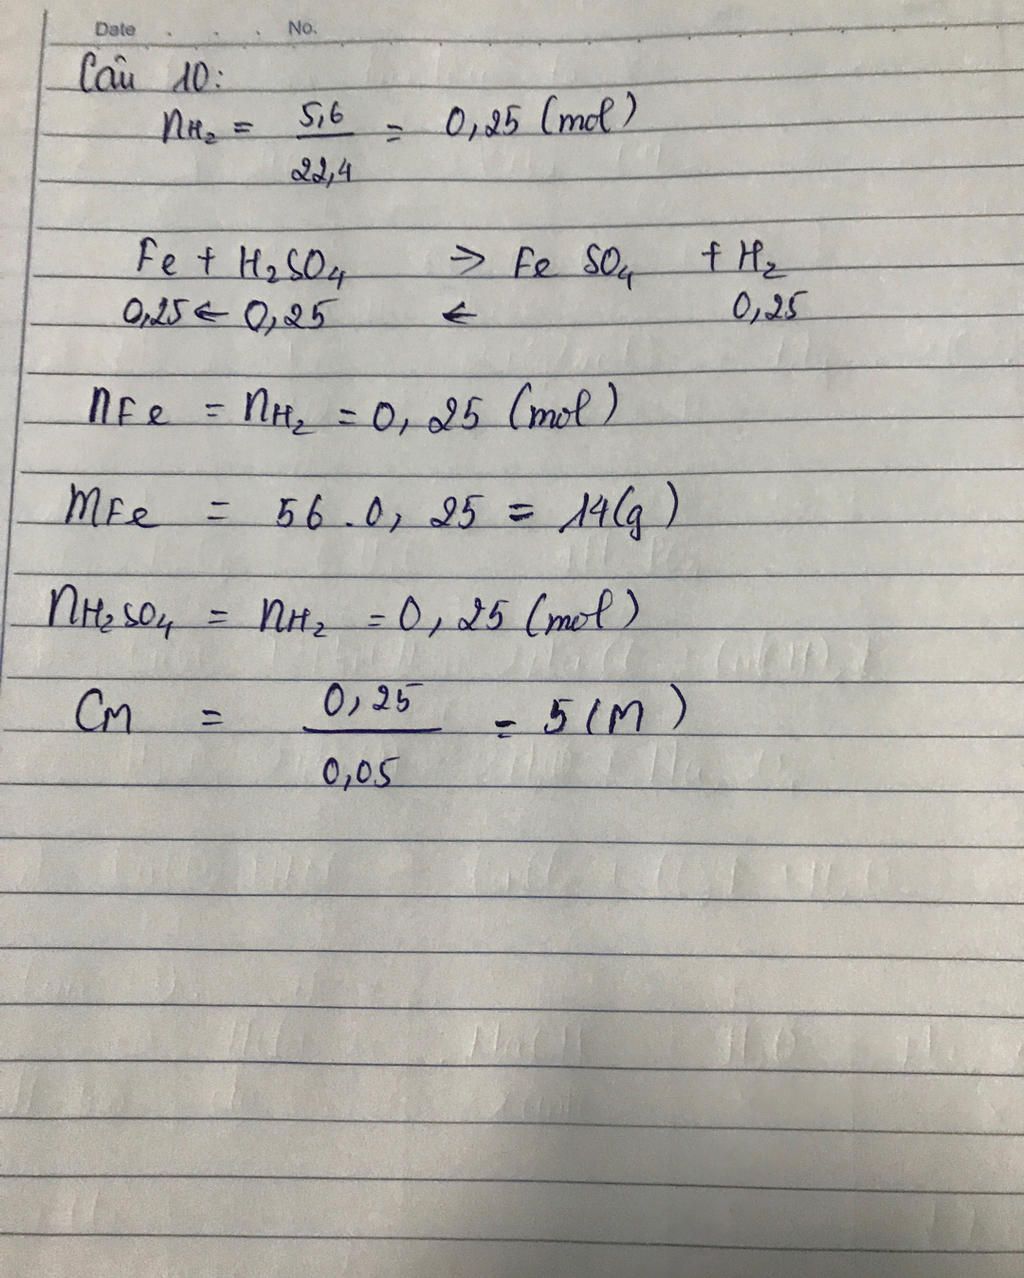 Date . . . No.
Câu 10:
nH₂ = 5,6 / 22,4 = 0,25 (mol)
Fe + H₂SO₄ → FeSO₄ + H₂
0,25 ← 0,25 ← 0,25
nFe = nH₂ = 0,25 (mol)
mFe = 56 . 0,25 = 14(g)
nH₂SO₄ = nH₂ = 0,25 (mol)
CM = 0,25 / 0,05 = 5 (M)